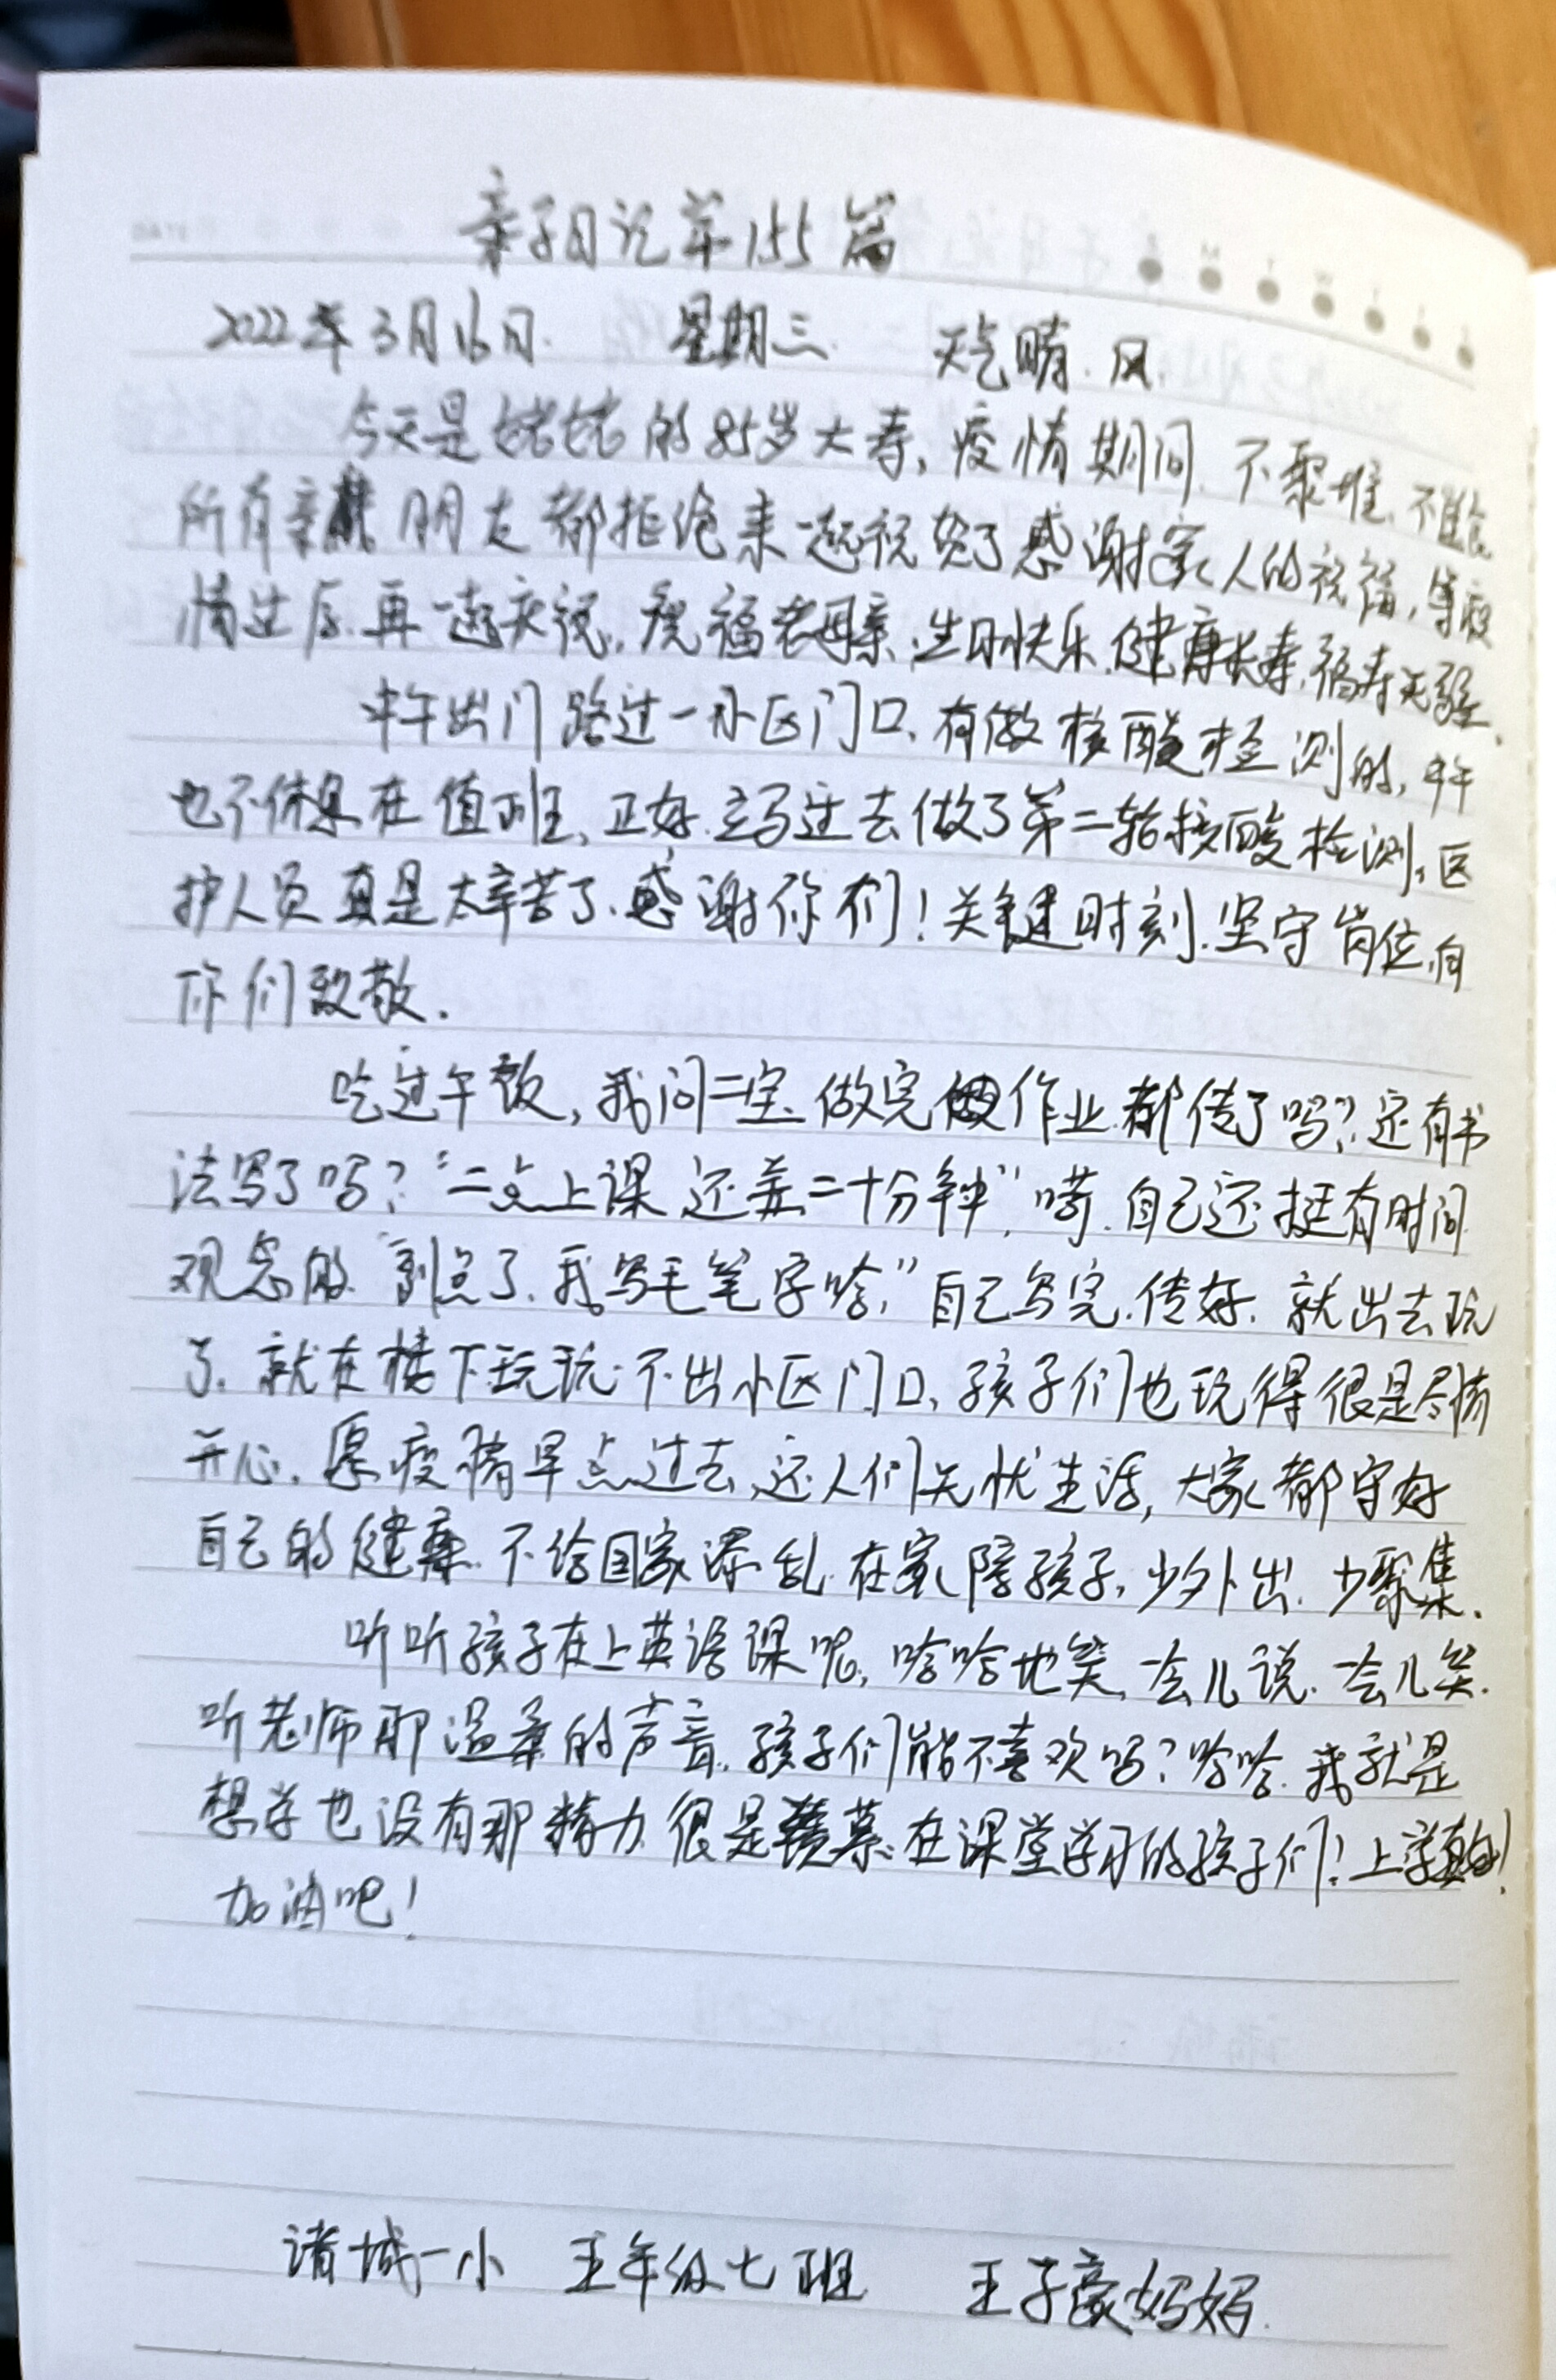 亲子日记第155篇
2022年3月16日. 星期三. 天气晴.风.
今天是姥姥的85岁大寿,疫情期间.不聚堆.不
所有亲 朋友都拒绝来一起祝贺了感谢家人的祝福,等疫
情过后.再一起庆祝,祝福老母亲.生日快乐.健康长寿.福寿无疆.
中午出门路过一小区门口.有做核酸检测的,中午
也不休息在值班,正好.立马过去做了第二轮核酸检测,医
护人员真是太辛苦了.感谢你们!关键时刻.坚守岗位,向
你们致敬.
吃过午饭,我问二宝.做完的作业.都传了吗?还有书
法写了吗?“二点上课还差二十分钟”,嗬.自己还挺有时间
观念的“到点了.我写毛笔字哈,”自己写完.传好.就出去玩
了.就在楼下玩玩.不出小区门口,孩子们也玩得很是尽情
开心.愿疫情早点过去,还人们无忧生活,大家都守好
自己的健康.不给国家添乱.在家陪孩子,少外出.少聚集.
听听孩子在上英语课呢,哈哈地笑,一会儿说.一会儿笑.
听老师那温柔的声音.孩子们能不喜欢吗?哈哈.我就是
想学也没有那精力.很是羡慕.在课堂学习的孩子们!上学真好!
加油吧!
诸城一小 五年级七班 王子豪妈妈.